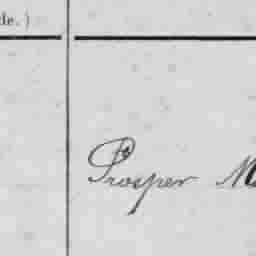 de. )
Prosper M